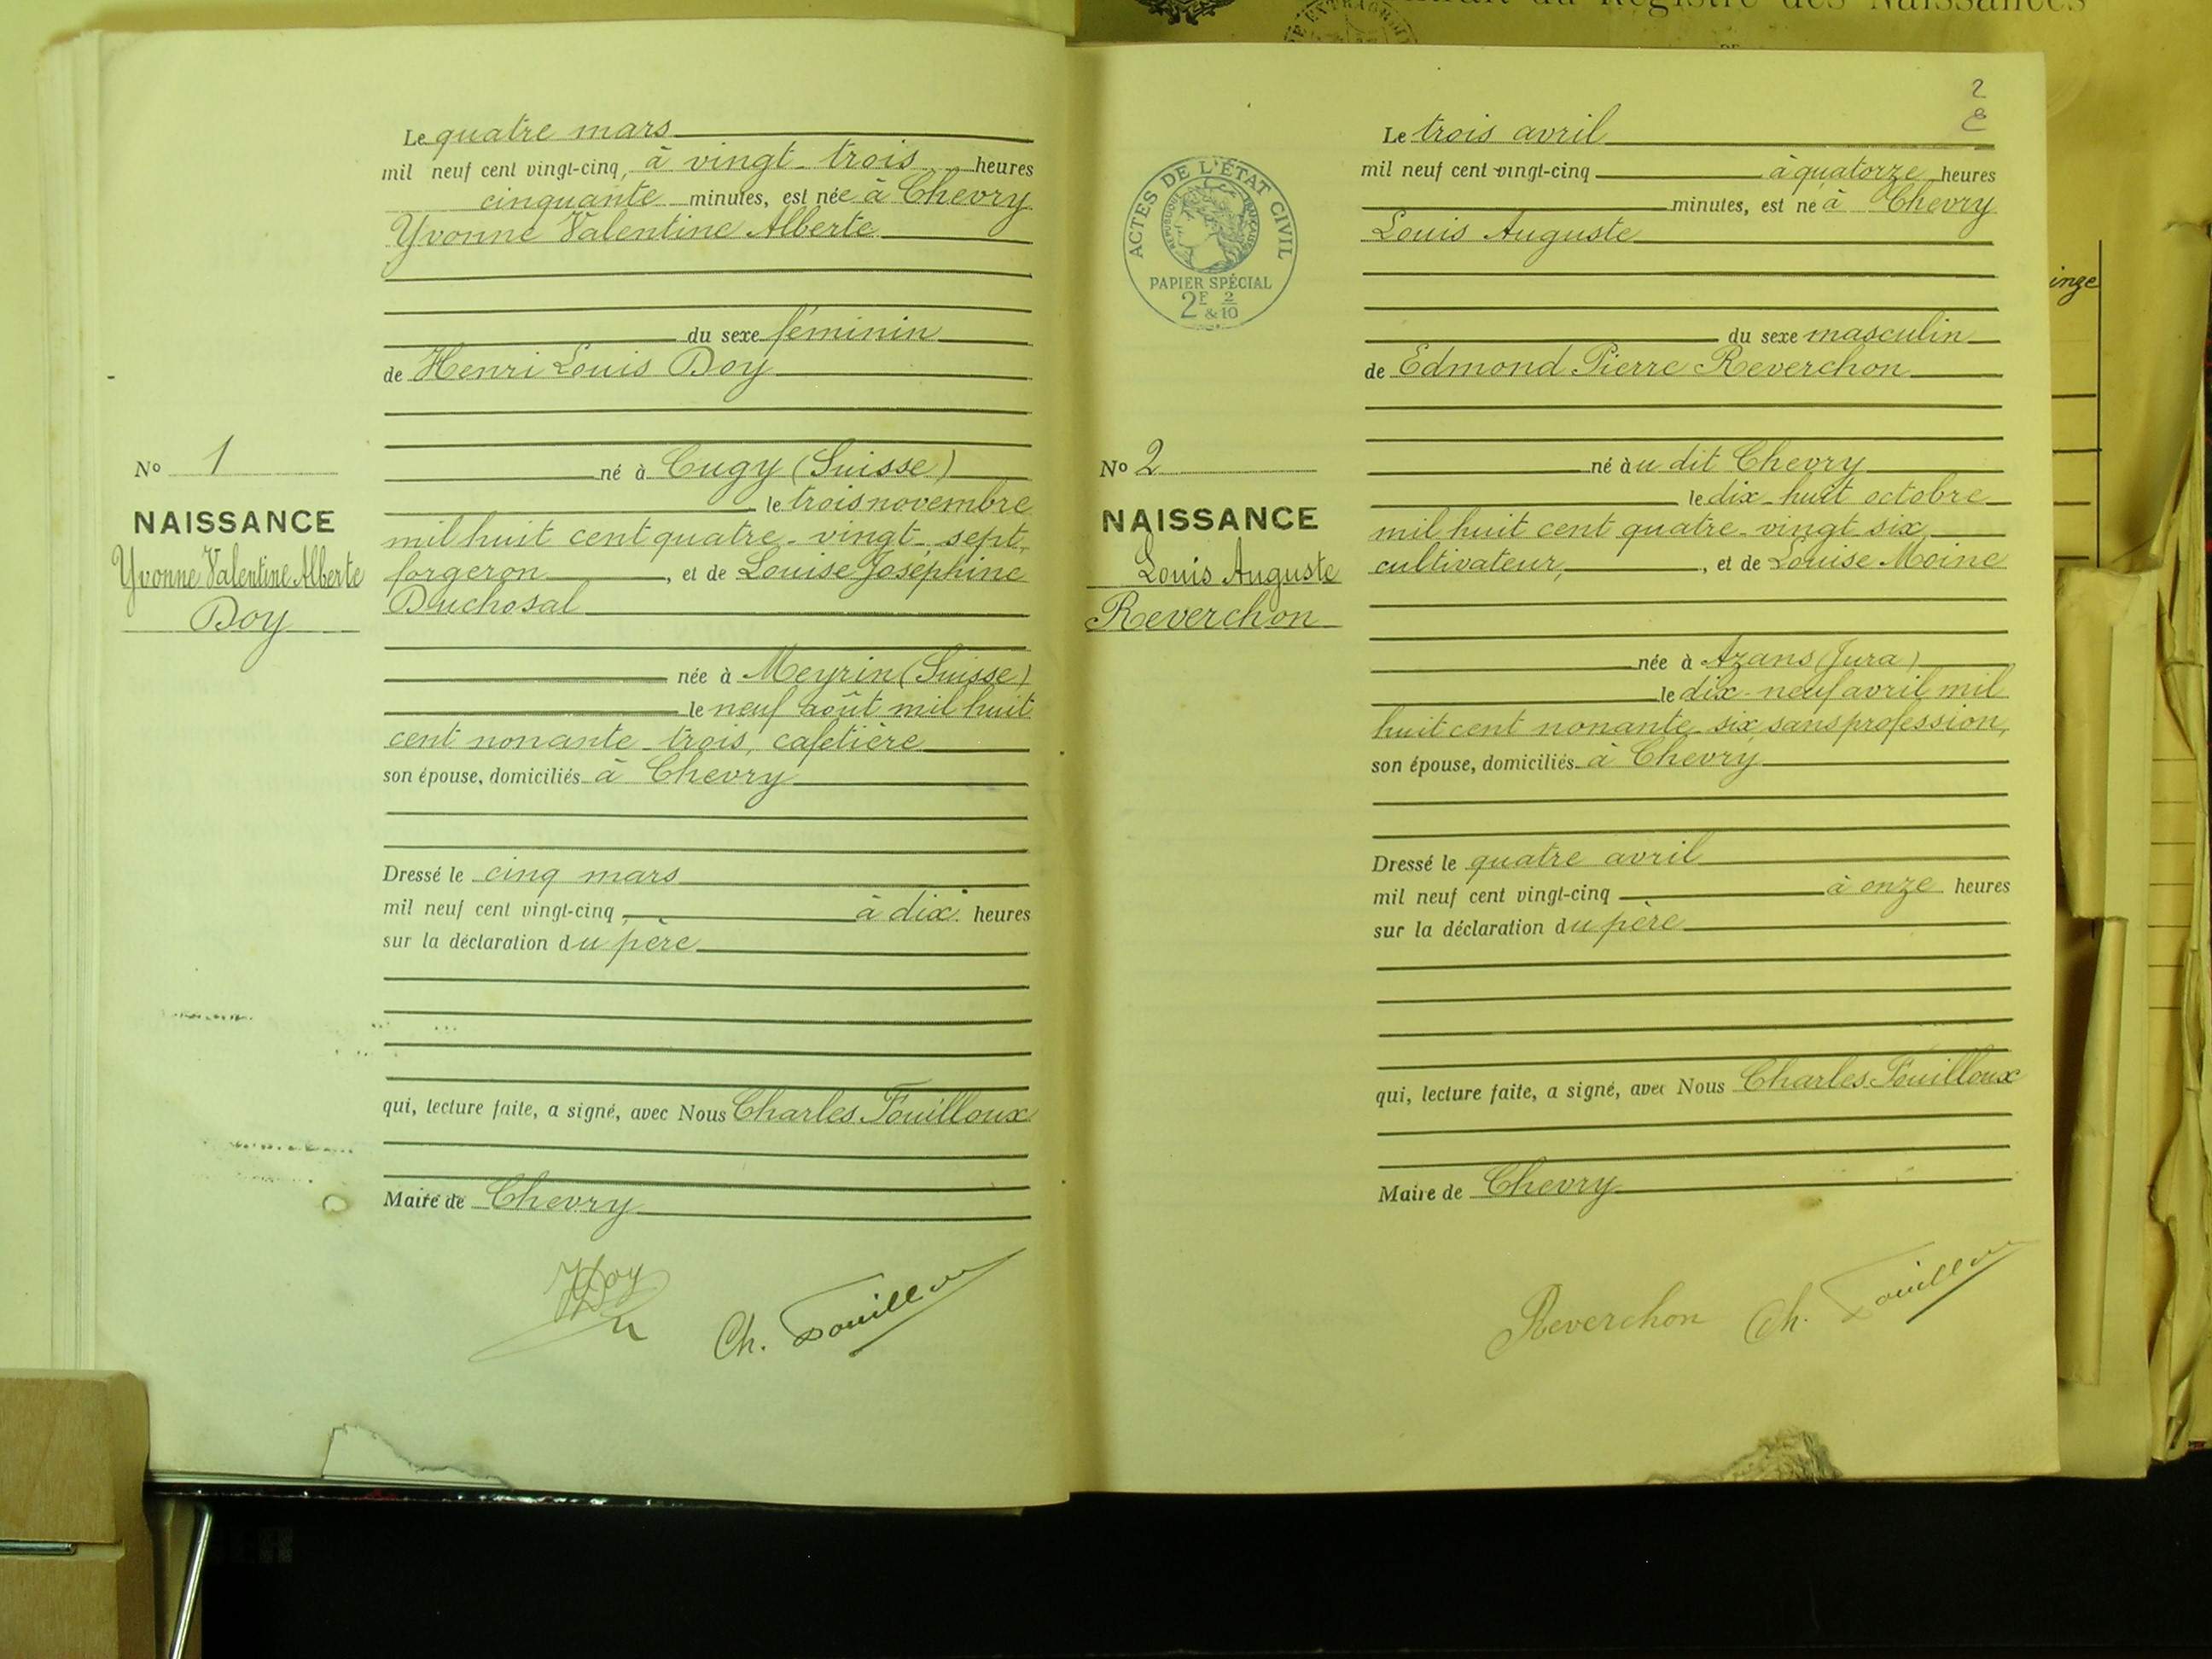 Le quatre mars
mil neuf cent vingt-cinq, à vingt-trois heures
cinquante minutes, est née à Chevry
Yvonne Valentine Alberte
du sexe féminin
de Henri Louis Doy
né à Cugy (Suisse)
le trois novembre
mil huit cent quatre-vingt-sept,
forgeron, et de Louise Joséphine
Duchosal
née à Meyrin (Suisse)
le neuf août mil huit
cent nonante-trois, cafetière
son épouse, domiciliés à Chevry
Dressé le cinq mars
mil neuf cent vingt-cinq, à dix heures
sur la déclaration du père
qui, lecture faite, a signé, avec Nous Charles Fouilloux
Maire de Chevry
No 1
NAISSANCE
Yvonne Valentine Alberte
Doy
HDoy
Ch. Fouilloux
2
Le trois avril
mil neuf cent vingt-cinq à quatorze heures
minutes, est né à Chevry
Louis Auguste
du sexe masculin
de Edmond Pierre Reverchon
né au dit Chevry
le dix-huit octobre
mil huit cent quatre-vingt six
cultivateur, et de Louise Moine
née à Azans (Jura)
le dix-neuf avril mil
huit cent nonante-six, sans profession,
son épouse, domiciliés à Chevry
Dressé le quatre avril
mil neuf cent vingt-cinq à onze heures
sur la déclaration du père
qui, lecture faite, a signé, avec Nous Charles Fouilloux
Maire de Chevry
ACTES DE L'ÉTAT CIVIL
RÉPUBLIQUE FRANÇAISE
PAPIER SPÉCIAL
2F & 2/10
No 2
NAISSANCE
Louis Auguste
Reverchon
Reverchon Ch. Fouilloux
Registre des Naissances